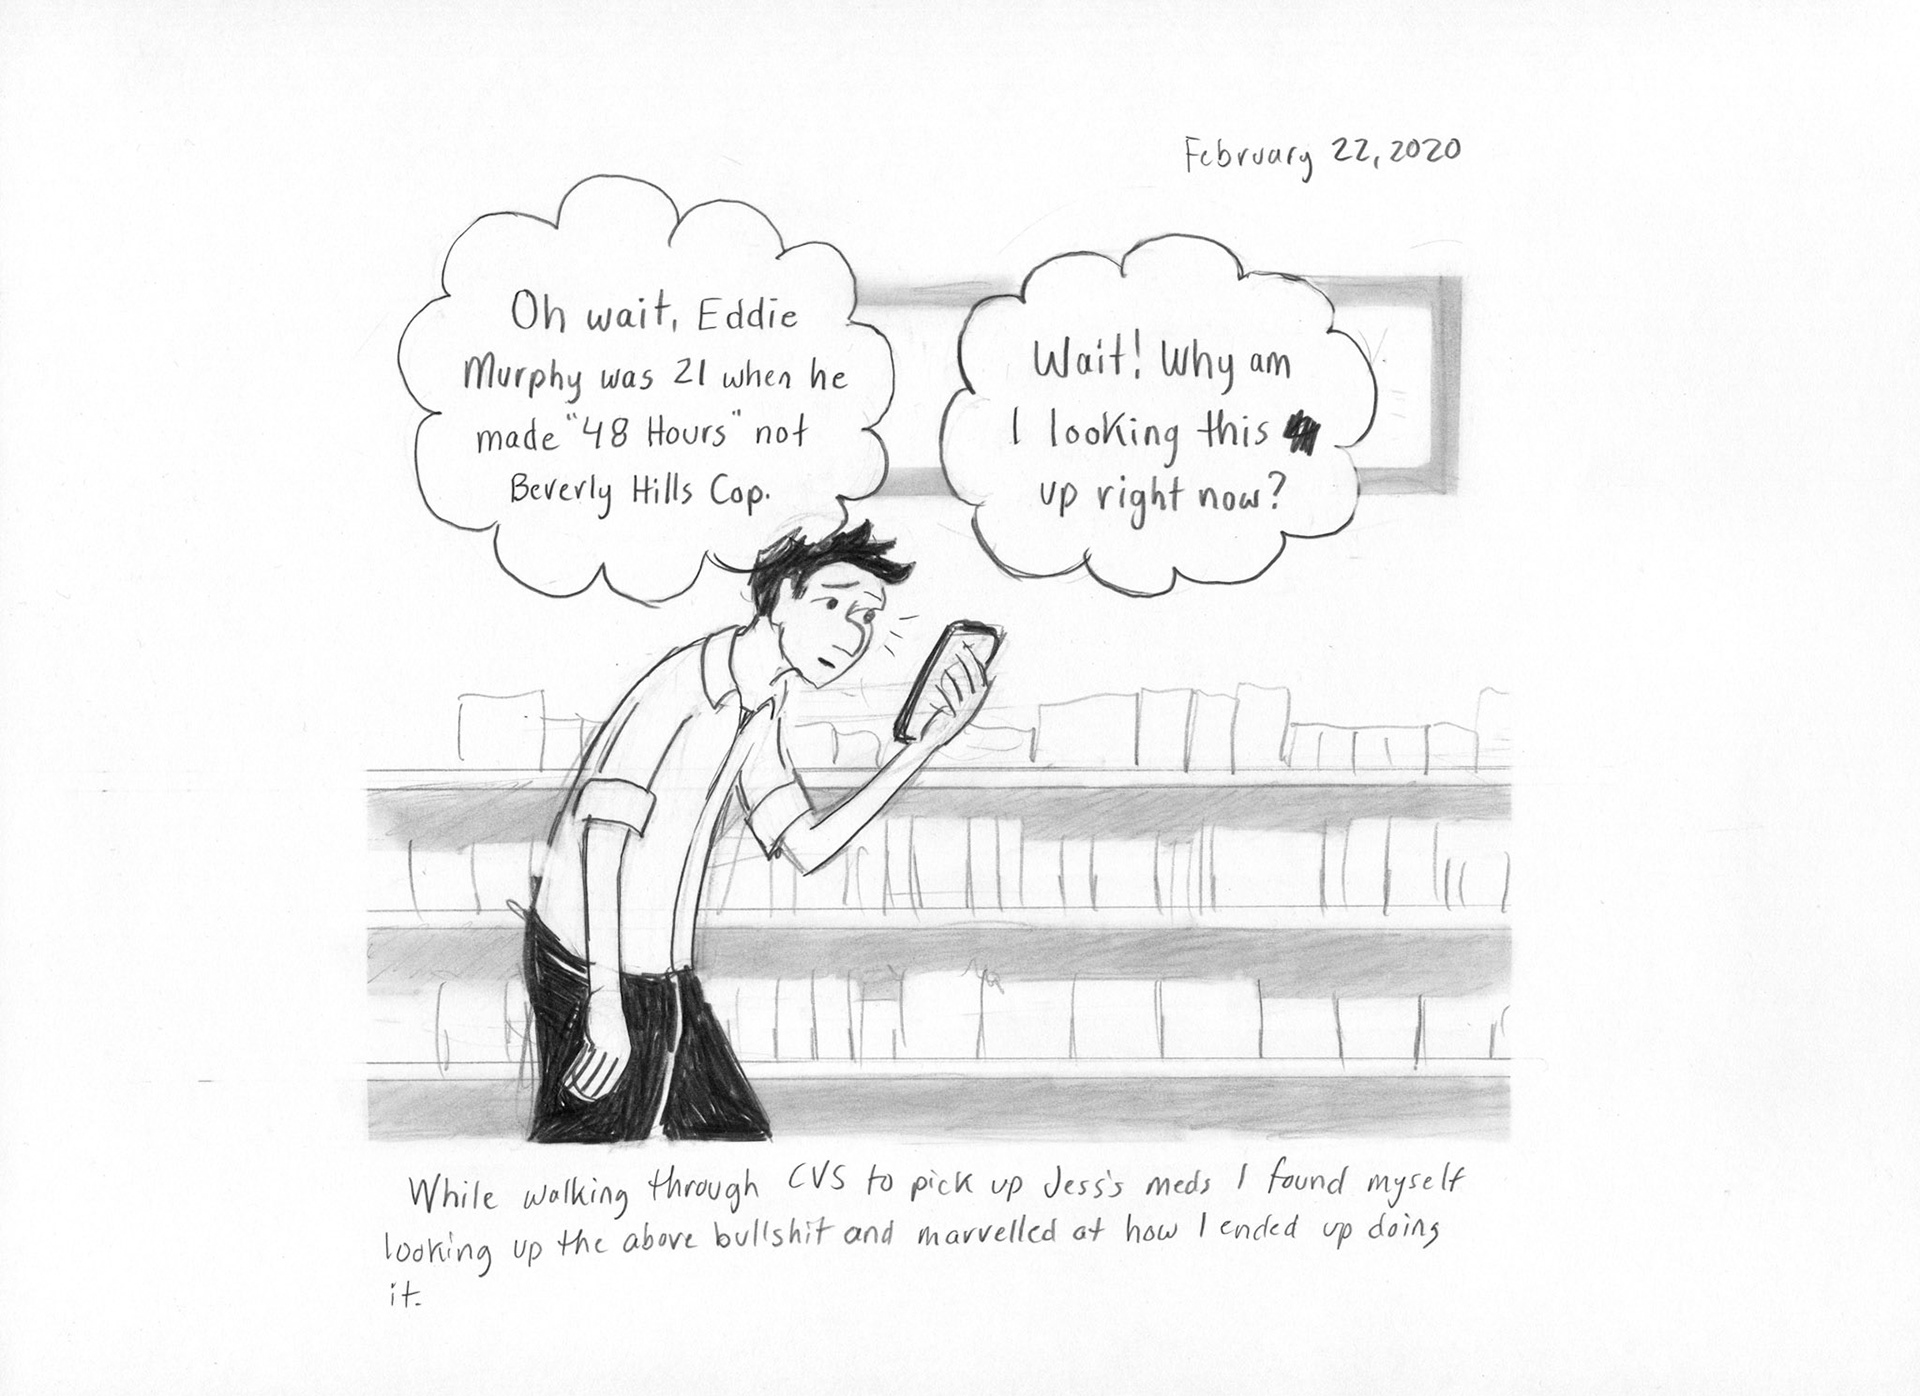 February 22, 2020
Oh wait, Eddie
Murphy was 21 when he
made "48 Hours" not
Beverly Hills Cop.
Wait! Why am
I looking this
up right now?
While walking through CVS to pick up Jess's meds I found myself
looking up the above bullshit and marvelled at how I ended up doing
it.